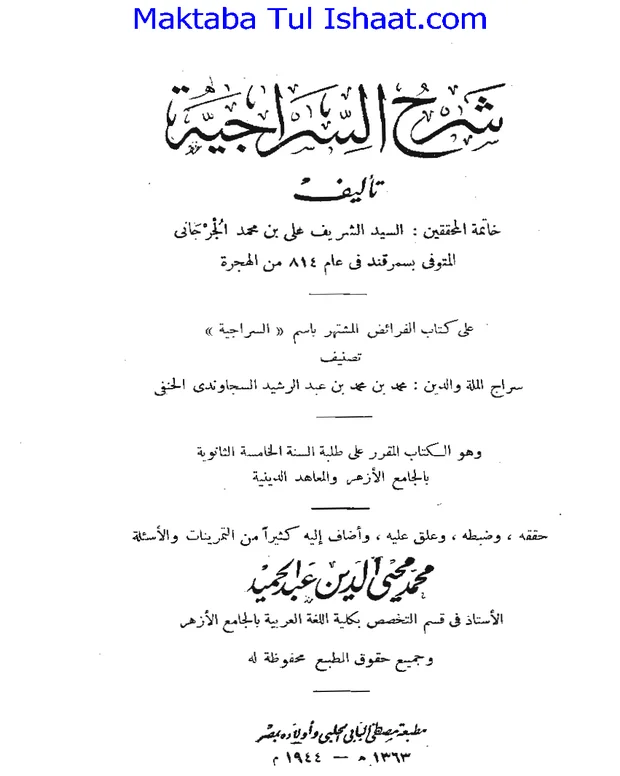 Maktaba Tul Ishaat.com
شرح السراجية
تأليف
خاتمة المحققين : السيد الشريف على بن محمد الجرجانى
المتوفى بسمرقند فى عام ٨١٤ من الهجرة
على كتاب الفرائض المشتهر باسم « السراجية »
تصنيف
سراج الملة والدين : محمد بن محمد بن عبد الرشيد السجاوندى الحنفى
وهو الكتاب المقرر على طلبة السنة الخامسة الثانوية
بالجامع الأزهر والمعاهد الدينية
حققه ، وضبطه ، وعلق عليه ، وأضاف إليه كثيراً من التمرينات والأسئلة
محمد محيى الدين عبد الحميد
الأستاذ فى قسم التخصص بكلية اللغة العربية بالجامع الأزهر
وجميع حقوق الطبع محفوظة له
مطبعة مصطفى البابى الحلبى وأولاده بمصر
١٣٦٣ ه – ١٩٤٤ م